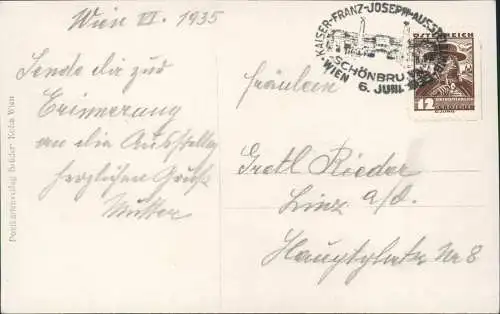 Wien VI. 1935
Sende dir zur
Erinnerung
an die Ausstellg
herzlichen Gruß
Mutter
Postkartenverlag Brüder Kohn Wien
KAISER-FRANZ-JOSEPH-AUSST
SCHÖNBRU
WIEN
6. JUNI
ÖSTERREICH
12
Fräulein
Gretl Rieder
Linz a/d.
Hauptplatz Nr 8